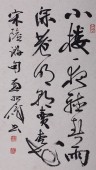 小楼一夜听春雨
深巷明朝卖杏花
宋陆游句